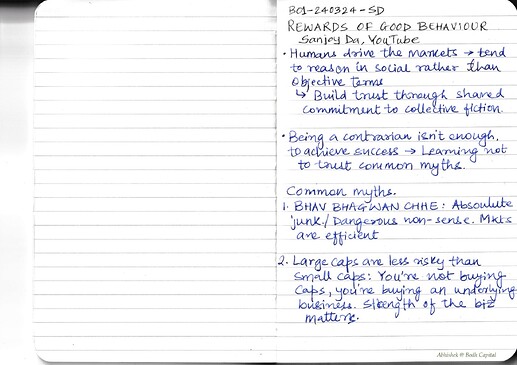 B01-240324-SD
REWARDS OF GOOD BEHAVIOUR
Sanjoy Da, YouTube
• Humans drive the markets → tend
to reason in social rather than
objective terms
↳ Build trust through shared
commitment to collective fiction.
• Being a contrarian isn't enough,
to achieve success → Learning not
to trust common myths.
Common myths.
1. BHAV BHAGWAN CHHE: Absoulute
junk./Dangerous non-sense. Mkts
are efficient
2. Large caps are less risky than
small caps: You're not buying
caps, you're buying an underlying
business. Strength of the biz
matters.
Abhishek @ Bodh Capital